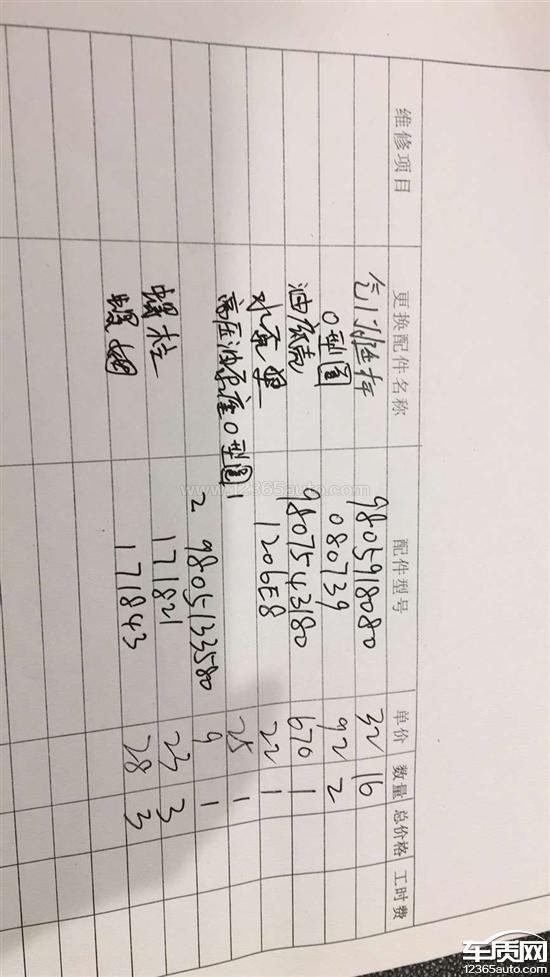 维修项目 更换配件名称 配件型号 单价 数量 总价格 工时费
气门挺柱 9805918080 32 16
O型圈 080739 92 2
油底壳 9807543180 670 1
水泵 1206E8 22 1
高压油泵座O型圈 1 25 1
2 9805133580 9 1
螺栓 171821 23 3
螺帽 171843 28 3
www.12365auto.com
车质网
12365auto.com